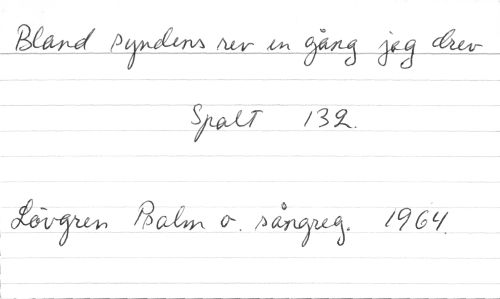 Bland syndens rev en gång jag drev
Spalt 132.
Lövgren Psalm o. sångreg. 1964.